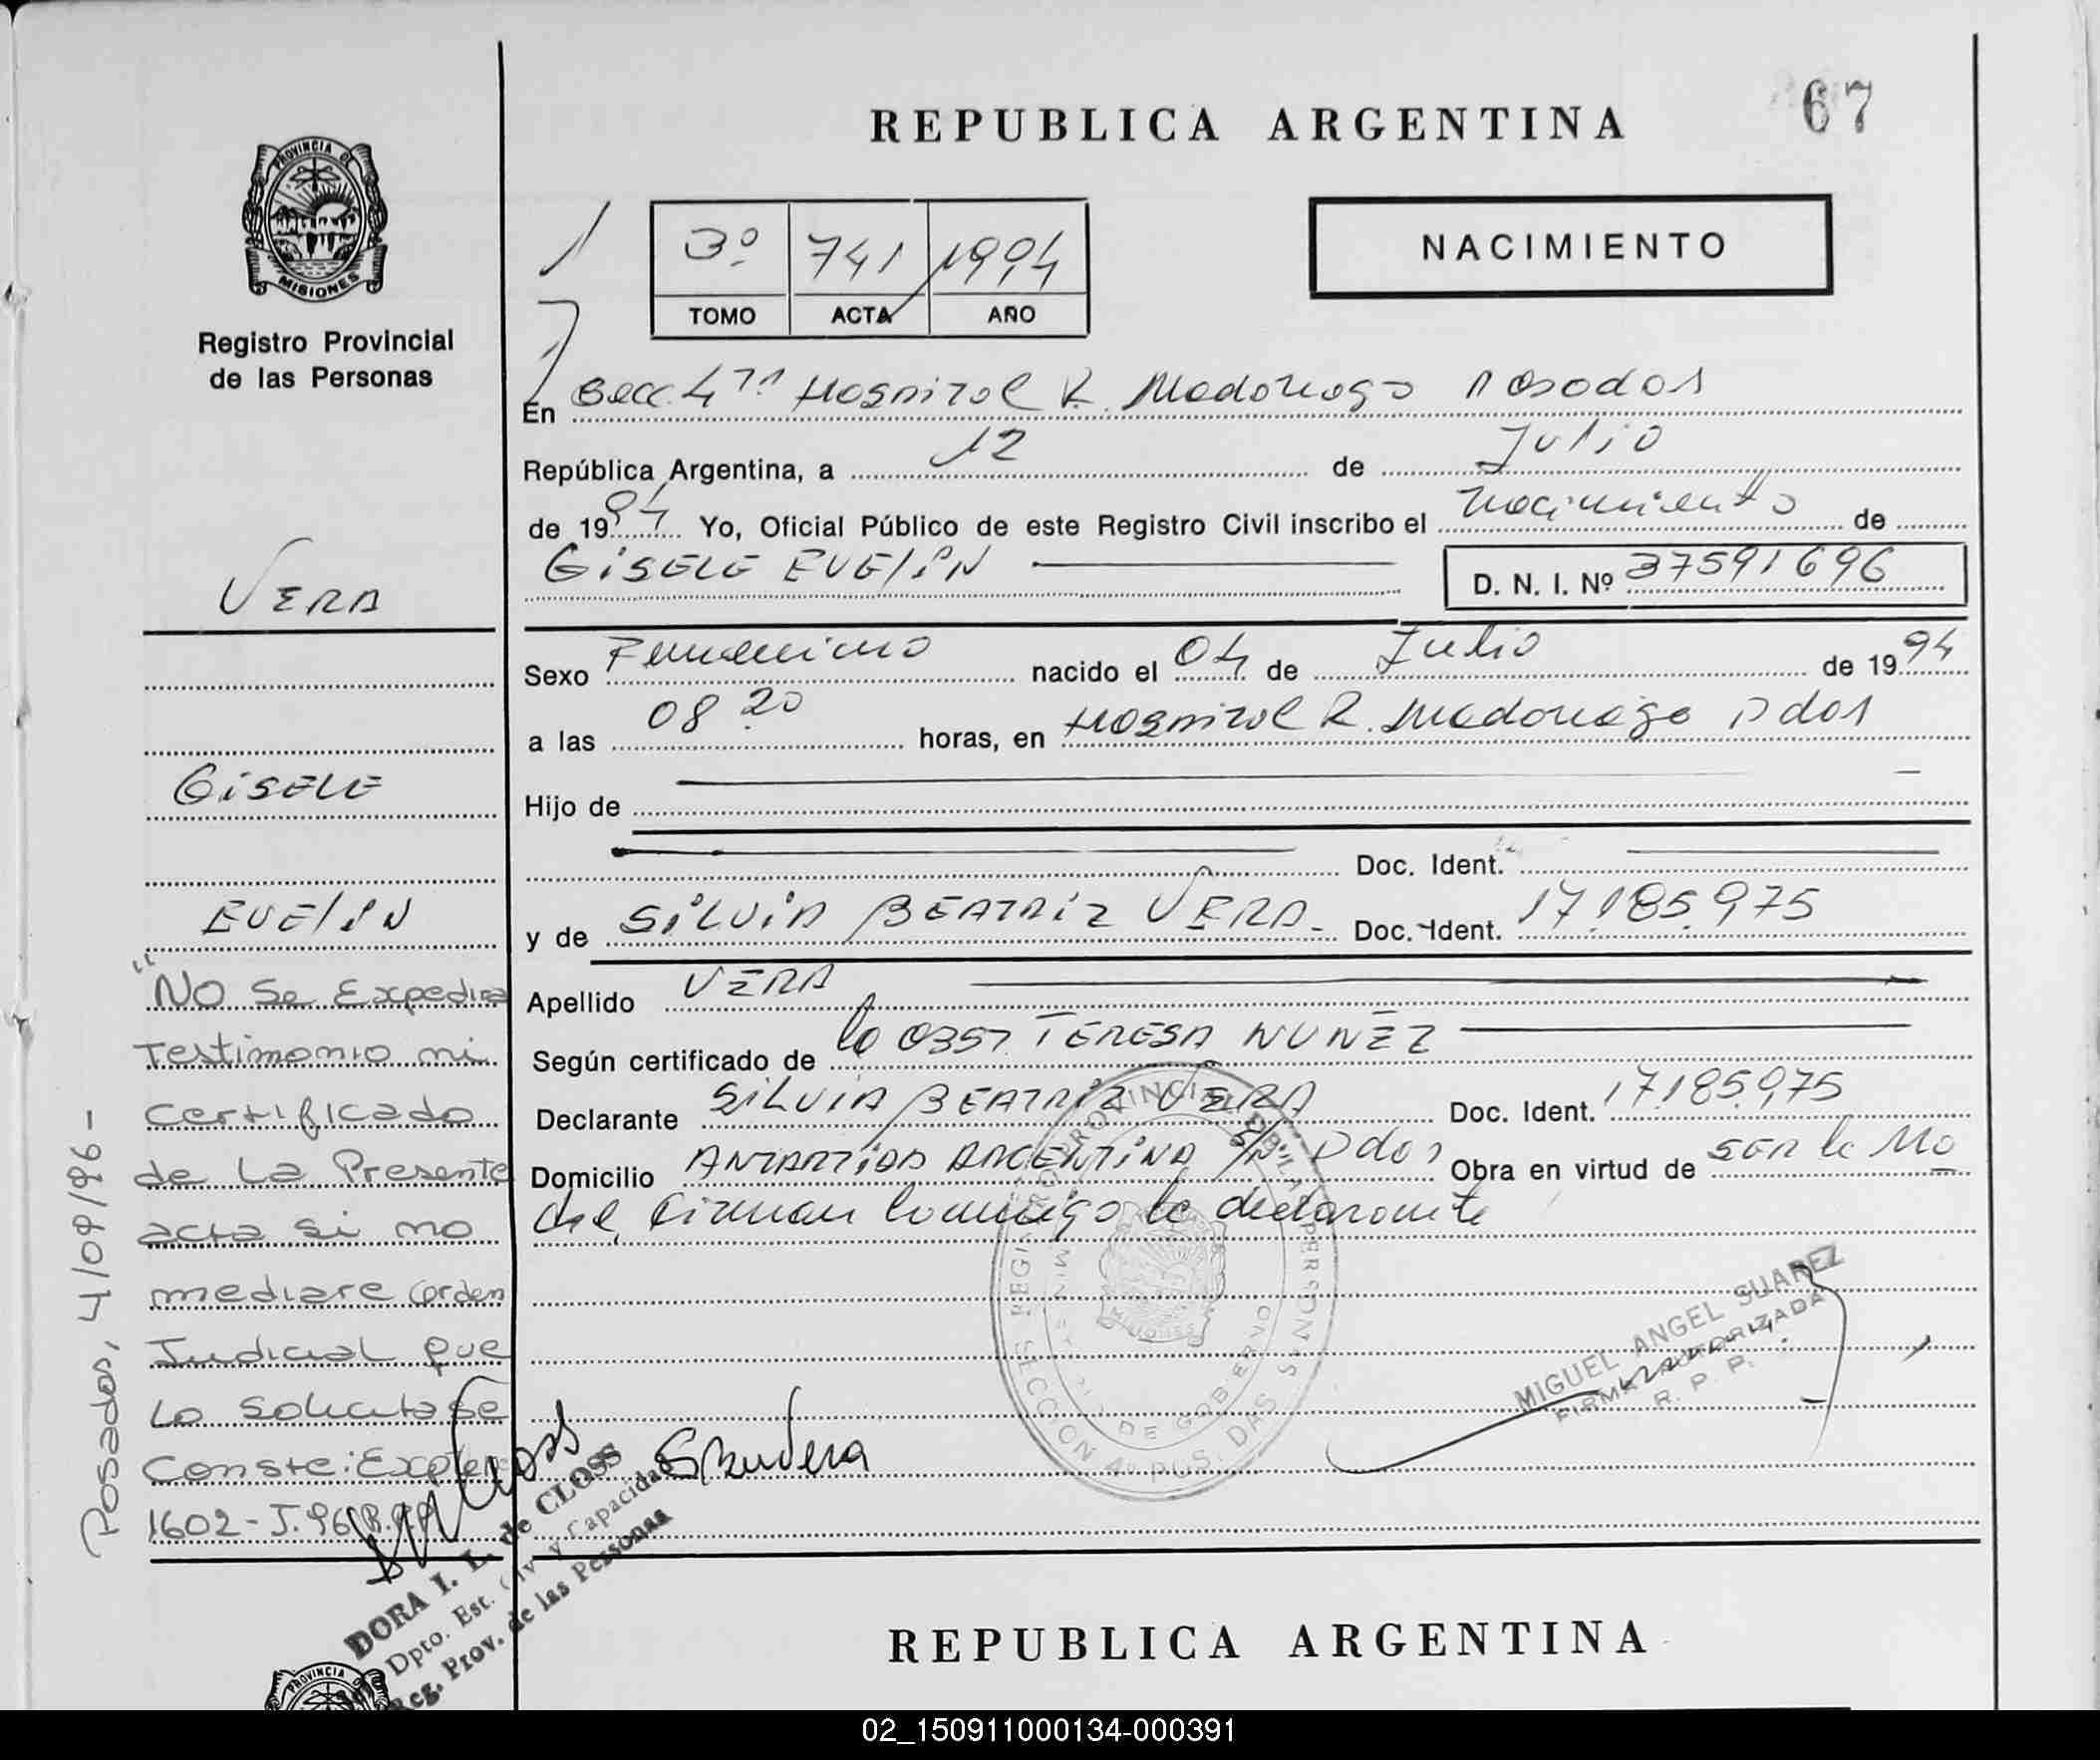 PROVINCIA DE
MISIONES
Registro Provincial
de las Personas
VERA
GISELE
EVELIN
"No Se Expedira
Testimonio ni
Certificado
de La Presente
acta si no
mediare orden
Judicial que
Lo Solicitase
Conste: Expte
1602-J.96
Posadas, 4/09/96-
DORA I. L. de CLOSS
Dpto. Est. Civ. y Capacidad
Reg. Prov. de las Personas
REPUBLICA ARGENTINA
67
3º 741 1994
TOMO ACTA AÑO
NACIMIENTO
En Secc. 4ta Hospital R. Madariaga Posadas
República Argentina, a 12 de Julio
de 1994 Yo, Oficial Público de este Registro Civil inscribo el Nacimiento de
GISELE EVELIN D. N. I. Nº 37591696
Sexo Femenino nacido el 04 de Julio de 1994
a las 08 20 horas, en Hospital R. Madariaga Pdas
Hijo de
Doc. Ident.
y de SILVIA BEATRIZ VERA- Doc. Ident. 17.185.975
Apellido VERA
Según certificado de la Obst TERESA NUÑEZ
Declarante SILVIA BEATRIZ VERA Doc. Ident. 17.185.975
Domicilio ANTARTIDA ARGENTINA S/Nº Pdas Obra en virtud de SER la Ma
dre, Firman conmigo la declarante
REGISTRO PROVINCIAL DE LAS PERSONAS
SECCION 4º PDS.
MINIST. DE GOBIERNO
MISIONES
MIGUEL ANGEL SUAREZ
FIRMA AUTORIZADA
R. P. P.
REPUBLICA ARGENTINA
PROVINCIA
02_150911000134-000391